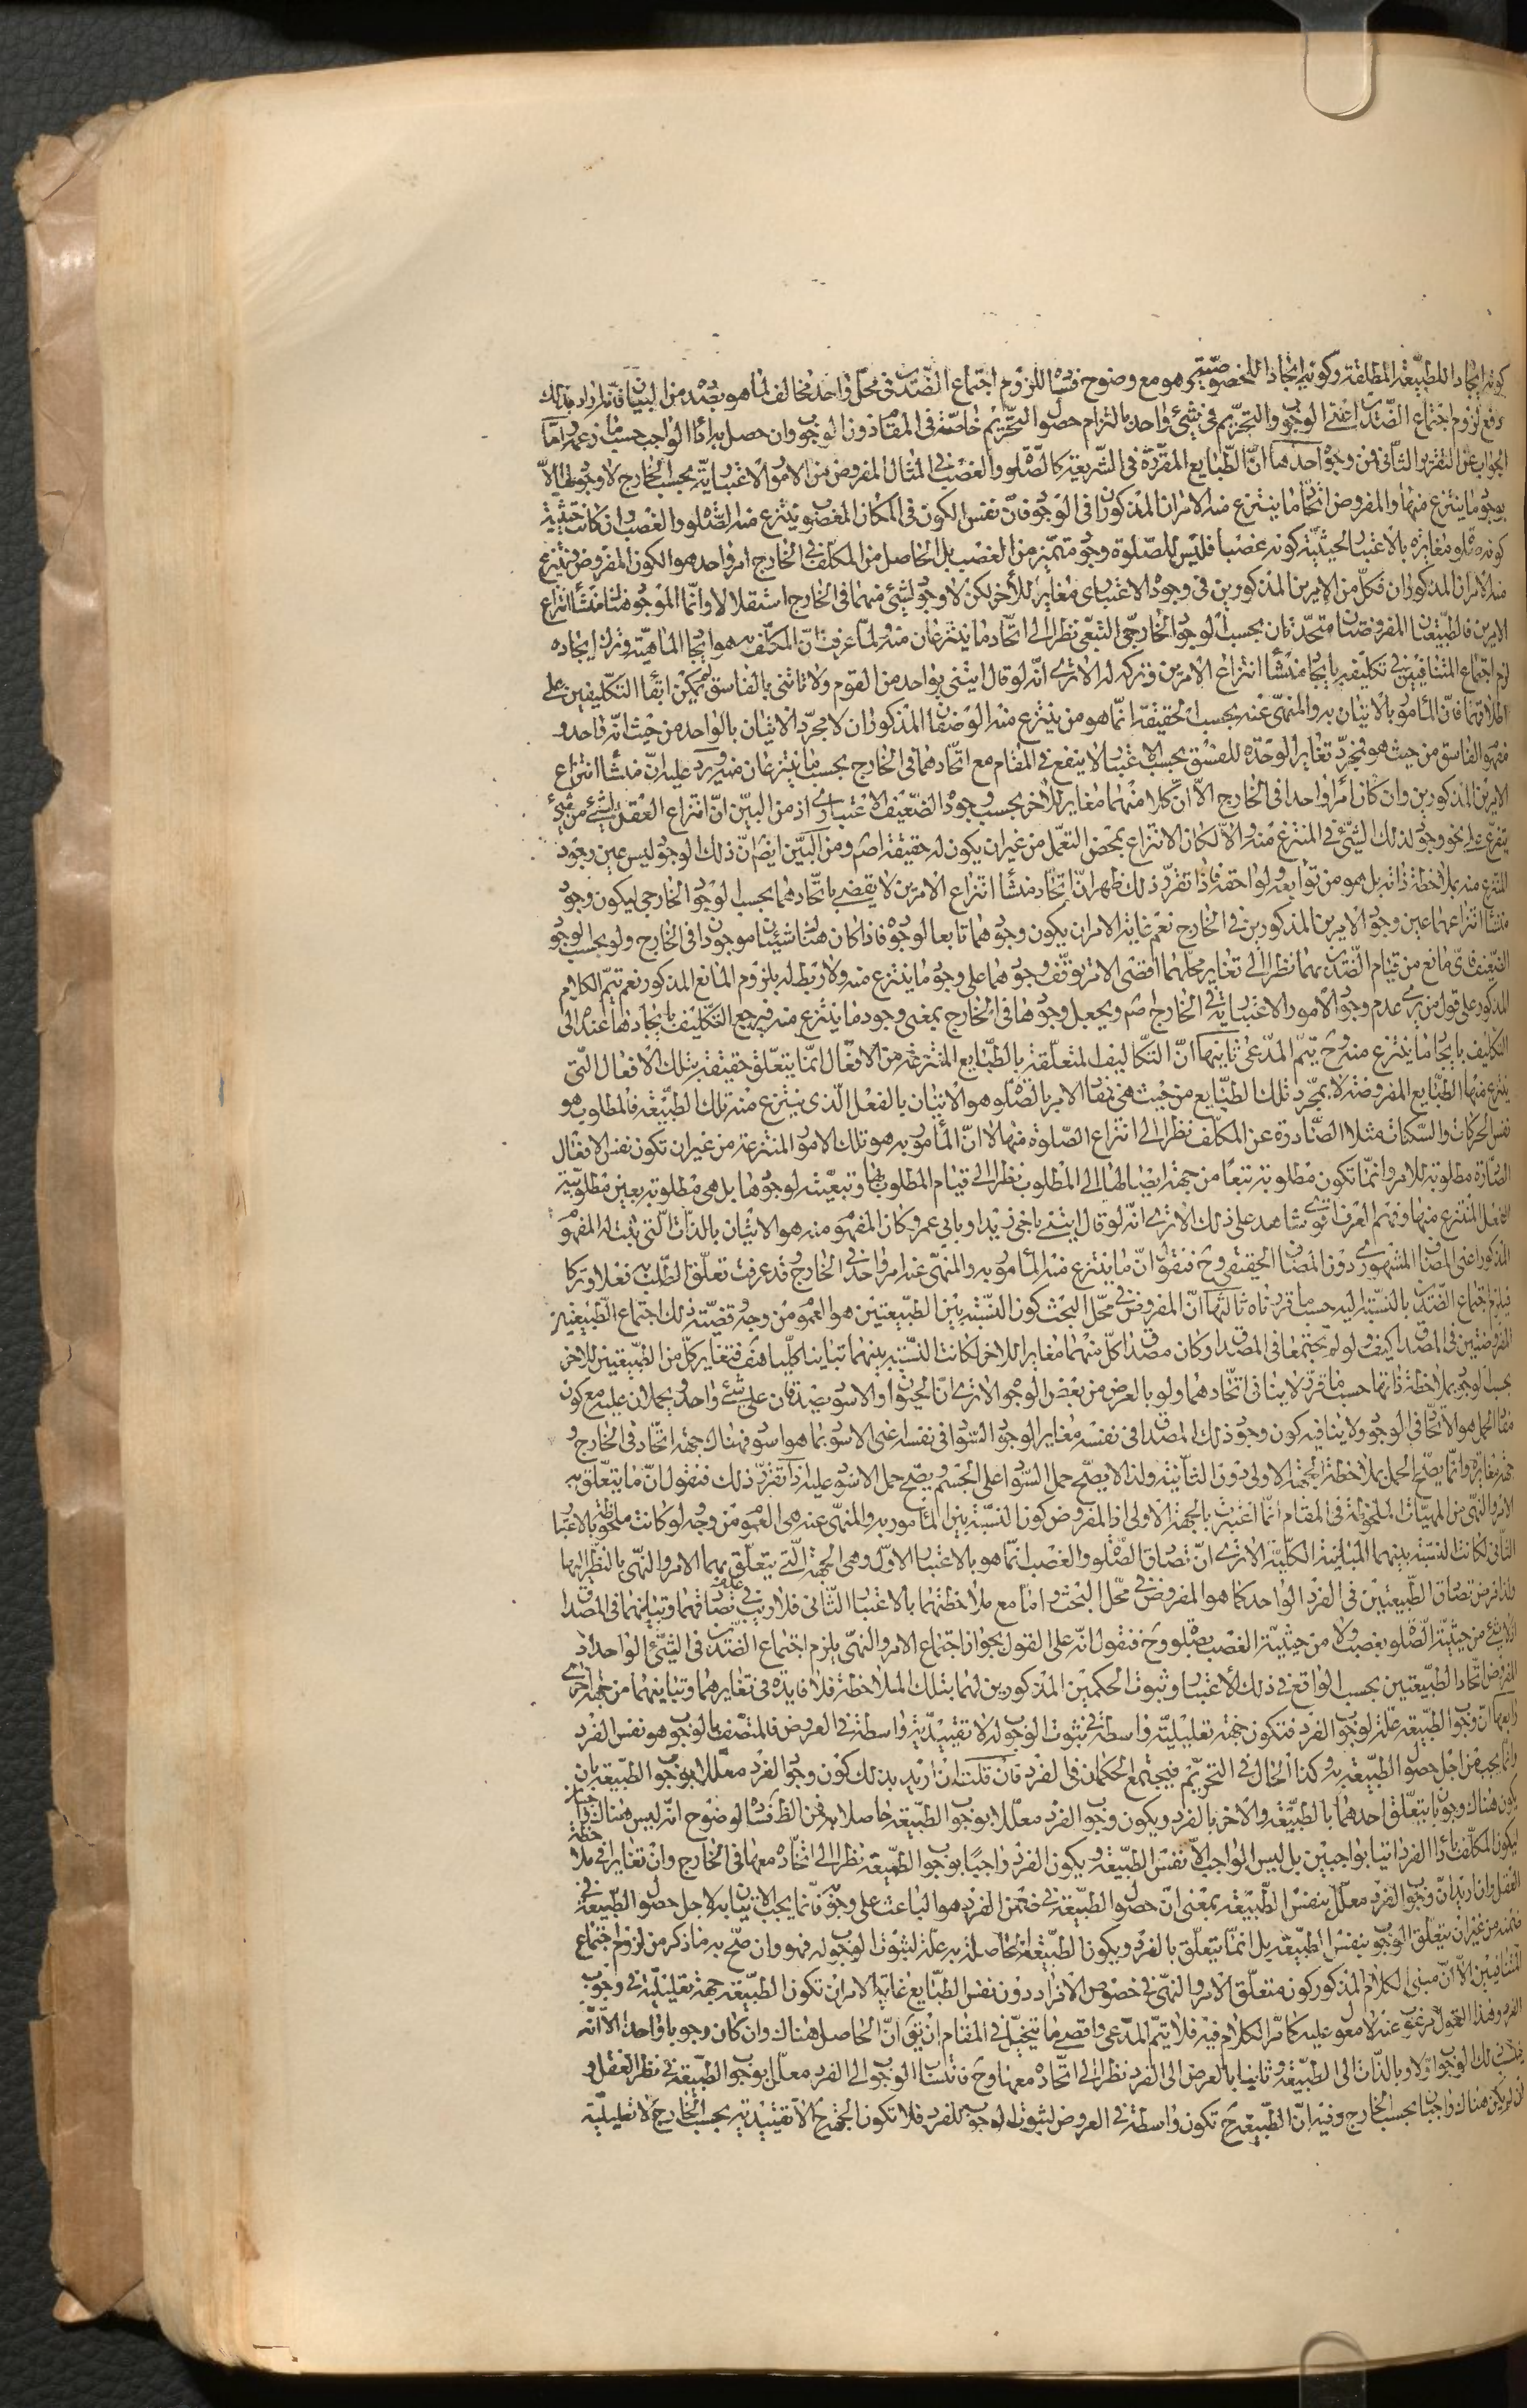 كونه ايجادا للطبيعة المطلقة وكونه ايجادا للخصوصية وهو مع وضوح فساده للزوم اجتماع الضدين في محل واحد مخالف لما هو بصدده من البيان فانه اراد بذلك
دفع لزوم اجتماع الضدين اعني الوجوب والتحريم في شيئ واحد بالتزام حصول التحريم خاصة في المقام دون الوجوب وان حصل به اداء الواجب حسب ما زعمه واما
الجواب عن التقرير الثاني فمن وجوه احدها ان الطبايع المقررة في الشريعة كالصلوة والغصب في المثال المفروض من الامور الاعتبارية بحسب الخارج لا وجود لها الا
بوجود ما ينتزع منها والمفروض اتحاد ما ينتزع منه الامران المذكوران في الوجود فان نفس الكون في المكان المغصوب ينتزع منه الصلوة والغصب وان كانت حيثية
كونه صلوة مغايرة بالاعتبار لحيثية كونه غصبا فليس للصلوة وجود متميز من الغصب بل الحاصل من المكلف في الخارج امر واحد هو الكون المفروض ينتزع
منه الامران المذكوران فكل من الامرين المذكورين في وجوده الاعتباري مغاير للأخر لكن لا وجود لشيئ منهما في الخارج استقلالا وانما الموجود هنا منشأ انتزاع
الامرين فالطبيعتان المفروضتان متحدتان بحسب الوجود الخارجي التبعي نظرا الى اتحاد ما ينتزعان منه ولما عرفت ان المكلف به هو ايجاد الماهية وترك ايجاده
لزم اجتماع المتنافيين في تكليفه بايجاد منشأ انتزاع الامرين وتركه له الا ترى انه لو قال ايتني بواحد من القوم ولا تاتني بالفاسق لم يمكن ابقاء التكليفين على
اطلاقهما فان المأمور بالاتيان به والمنهي عنه بحسب الحقيقة انما هو من ينتزع منه الوصفان المذكوران لا مجرد الاتيان بالواحد من حيث انه واحد و
مفهوم الفاسق من حيث هو فمجرد تغاير الوحدة للفسق بحسب الاعتبار لا ينفع في المقام مع اتحادهما في الخارج بحسب ما ينتزعان منه ويرد عليه ان منشأ انتزاع
الامرين المذكورين وان كان أمرا واحدا في الخارج الا ان كلا منهما مغاير للأخر بحسب وجوده الضعيف الاعتباري اذ من البين ان انتزاع العقل لشيئ من شيئ
يتفرع على نحو وجود لذلك الشيئ في المنتزع منه والا لكان الانتزاع بمحض التعمل من غير ان يكون له حقيقة اصم ومن البين ايضم ان ذلك الوجود ليس عين وجود
المنتزع منه بملاحظة ذاته بل هو من توابعه ولواحقه فاذا تقرر ذلك ظهر ان اتحاد منشأ انتزاع الامرين لا يقضي باتحادهما بحسب الوجود الخارجي ليكون وجود
منشأ انتزاعهما عين وجود الامرين المذكورين في الخارج نعم غاية الامر ان يكون وجودهما تابعا لوجوده فاذا كان هناك شيئان موجودان في الخارج ولو بحسب الوجود
الضعيف فاى مانع من قيام الضدين بهما نظرا الى تغاير محلهما اقصى الامر توقف وجودهما على وجود ما ينتزع منه ولا ربط له بلزوم المانع المذكور نعم يتم الكلام
المذكور على قول من يرى عدم وجود الامور الاعتبارية في الخارج اصم ويجعل وجودها في الخارج بمعنى وجود ما ينتزع منه فيرجع التكليف بايجادها عنده الى
التكليف بايجاد ما ينتزع منه وح يتم المدعى ثانيها ان التكاليف المتعلقة بالطبايع المنتزعة من الافعال انما يتعلق حقيقة بتلك الافعال التي
ينتزع منها الطبايع المفروضة لا بمجرد تلك الطبايع من حيث هي فمفاد الامر بالصلوة هو الاتيان بالفعل الذي ينتزع منه تلك الطبيعة فالمطلوب هو
نفس الحركات والسكنات مثلا الصادرة عن المكلف نظرا الى انتزاع الصلوة منها لا ان المأمور به هو تلك الامور المنتزعة من غير ان تكون نفس الافعال
الصادرة مطلوبة للامر وانما تكون مطلوبة تبعا من جهة ايصالها الى المطلوب نظرا الى قيام المطلوب بها وتبعيته لوجودها بل هي مطلوبة بعين مطلوبية
الفعل المنتزع منها وفهم العرف اقوى شاهد على ذلك الا ترى انه لو قال ايتني باخى زيد او بابي عمرو كان المفهوم منه هو الاتيان بالذات التي ثبت له المفهوم
المذكور اعني المضاف المشهوري دون المضاف الحقيقي وح فنقول ان ما ينتزع منه المأمور به والمنهي عنه امر واحد في الخارج وقد عرفت تعلق الطلب به فعلا وتركا
فيلزم اجتماع الضدين بالنسبة اليه حسب ما قررناه ثالثها ان المفروض في محل البحث كون النسبة بين الطبيعتين هو العموم من وجه وقضية ذلك اجتماع الطبيعتين
المفروضتين في المصداق كيف ولو لم يجتمعا في المصداق وكان مصداق كل منهما مغايرا للاخر لكانت النسبة بينهما تباينا كليا هف فتغاير كل من الطبيعتين للاخر
بحسب الوجود بملاحظة ذاتهما حسب ما قرر لا ينافي اتحادهما ولو بالعرض من بعض الوجوه الا ترى ان الحيوان والاسود يصدقان على شئ واحد ويحملان عليه مع كون
مفاد الحمل هو الاتحاد في الوجود ولا ينافيه كون وجود ذلك المصداق في نفسه مغاير الوجود السواد في نفسه اعني الاسود بما هو اسود فهناك جهة اتحاد في الخارج و
جهة مغايرة وانما يصح الحمل بملاحظة الجهة الاولى دون الثانية ولذا لا يصح حمل السواد على الجسم ويصح حمل الاسود عليه اذا تقرر ذلك فنقول ان ما يتعلق به
الامر والنهي من المهيات الملحوظة في المقام انما اعتبرت بالجهة الاولى اذ المفروض كون النسبة بين المأمور به والمنهي عنه هي العموم من وجه ولو كانت ملحوظة بالاعتبار
الثاني لكانت النسبة بينهما المباينة الكلية الا ترى ان تصادق الصلوة والغصب انما هو بالاعتبار الاول وهي الجهة التي يتعلق بهما الامر والنهي بالنظر اليها
ولذا فرض تصادق الطبيعتين في الفرد الواحد كما هو المفروض في محل البحث واما مع ملاحظتهما بالاعتبار الثاني فلا ريب في عدم تصادقهما وتباينهما في المصداق
اذ لا شئ من حيثية الصلوة بغصب ولا من حيثية الغصب بصلوة وح فنقول انه على القول بجواز اجتماع الامر والنهي يلزم اجتماع الضدين في الشيئ الواحد اذ
المفروض اتحاد الطبيعتين بحسب الواقع في ذلك الاعتبار وثبوت الحكمين المذكورين لهما بتلك الملاحظة فلا فايدة في تغايرهما وتباينهما من جهة اخرى
رابعها ان وجوب الطبيعة علة لوجوب الفرد فتكون جهة تعليلية واسطة في ثبوت الوجوب له لا تقييدية واسطة في العروض فالمتصف بالوجوب هو نفس الفرد
وانما يجب من اجل حصول الطبيعة به وكذا الحال في التحريم فيجتمع الحكمان في الفرد فان قلت ان اريد بذلك كون وجوب الفرد معللا بوجوب الطبيعة بان
يكون هناك وجوبان يتعلق احدهما بالطبيعة والاخر بالفرد ويكون وجوب الفرد معللا بوجوب الطبيعة حاصلا به فمن الظ فساده لوضوح انه ليس هناك واجبان
ليكون المكلف بأداء الفرد اتيا بواجبين بل ليس الواجب الا نفس الطبيعة ويكون الفرد واجبا بوجوب الطبيعة نظرا الى اتحاده معها في الخارج وان تغايرا في ملاحظة
العقل وان اريد ان وجوب الفرد معلل بنفس الطبيعة بمعنى ان حصول الطبيعة في ضمن الفرد هو الباعث على وجوبه فانما يجب الاتيان به لاجل حصول الطبيعة في
ضمنه من غير ان يتعلق الوجوب بنفس الطبيعة بل انما يتعلق بالفرد ويكون الطبيعة الحاصلة به علة لثبوت الوجوب له فهو وان صح به ما ذكر من لزوم اجتماع
المتنافيين الا ان مبنى الكلام المذكور كون متعلق الامر والنهي خصوص الافراد دون نفس الطبايع غاية الامر ان تكون الطبيعة جهة تعليلية في وجوب
الفرد وهذا القول مرغوب عنه لا معول عليه كما مر الكلام فيه فلا يتم المدعى واقصى ما يتخيل في المقام ان يق ان الحاصل هناك وان كان وجوبا واحدا الا انه
ينسب ذلك الوجوب اولا وبالذات الى الطبيعة وثانيا بالعرض الى الفرد نظرا الى اتحاده معها وح فانتساب الوجوب الى الفرد معلل بوجوب الطبيعة في نظر العقل و
ان لم يكن هناك واجبان بحسب الخارج وفيه ان الطبيعة ح تكون واسطة في العروض لثبوت الوجوب للفرد فلا تكون الجهة ح الا تقييدية بحسب الخارج لا تعليلية